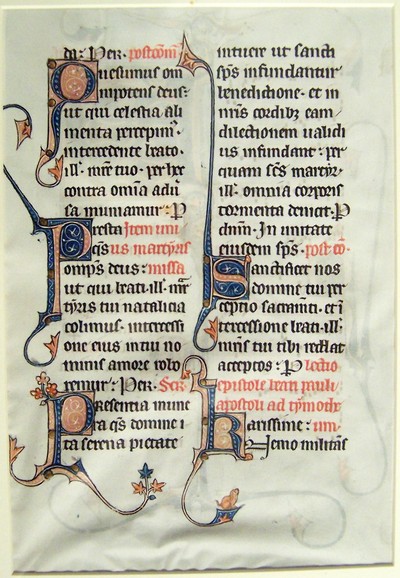 dz. Per. postcōmī
Quesumus om
nipotens deus:
ut qui celestia ali
menta percepimꝰ.
intercedente beato.
ill. mr̄e tuo. per hec
contra omīa adū
sa muniamur. P
Presta Item uni
q̄s us martyris
omp̄s deus: missa
ut qui beati. ill. mr̄
tyris tui natalicia
colimus. intercessi
one eius in tui no
minis amore robo
remur. Per. Secr̄
Presentia mune
ra q̄s domine i
ta serena pietate
intuere ut sancti
sp̄s infundantur
benedictione. et in
nr̄is cordibꝫ eam
dilectionem ualidi
us infundant. per
quam sc̄s martyr.
ill. omnia corporis
tormenta deuicit. P
dn̄m. In unitate
eiusdem sp̄s. post cō.
Sanctificet nos
domine tui per
ceptio sacramīti. et ī
tercessione beati. ill.
mr̄is tui tibi reddat
acceptos. P lectio
epistole beati pauli
apostoli ad tymothe
Karissime: um
Nemo militās